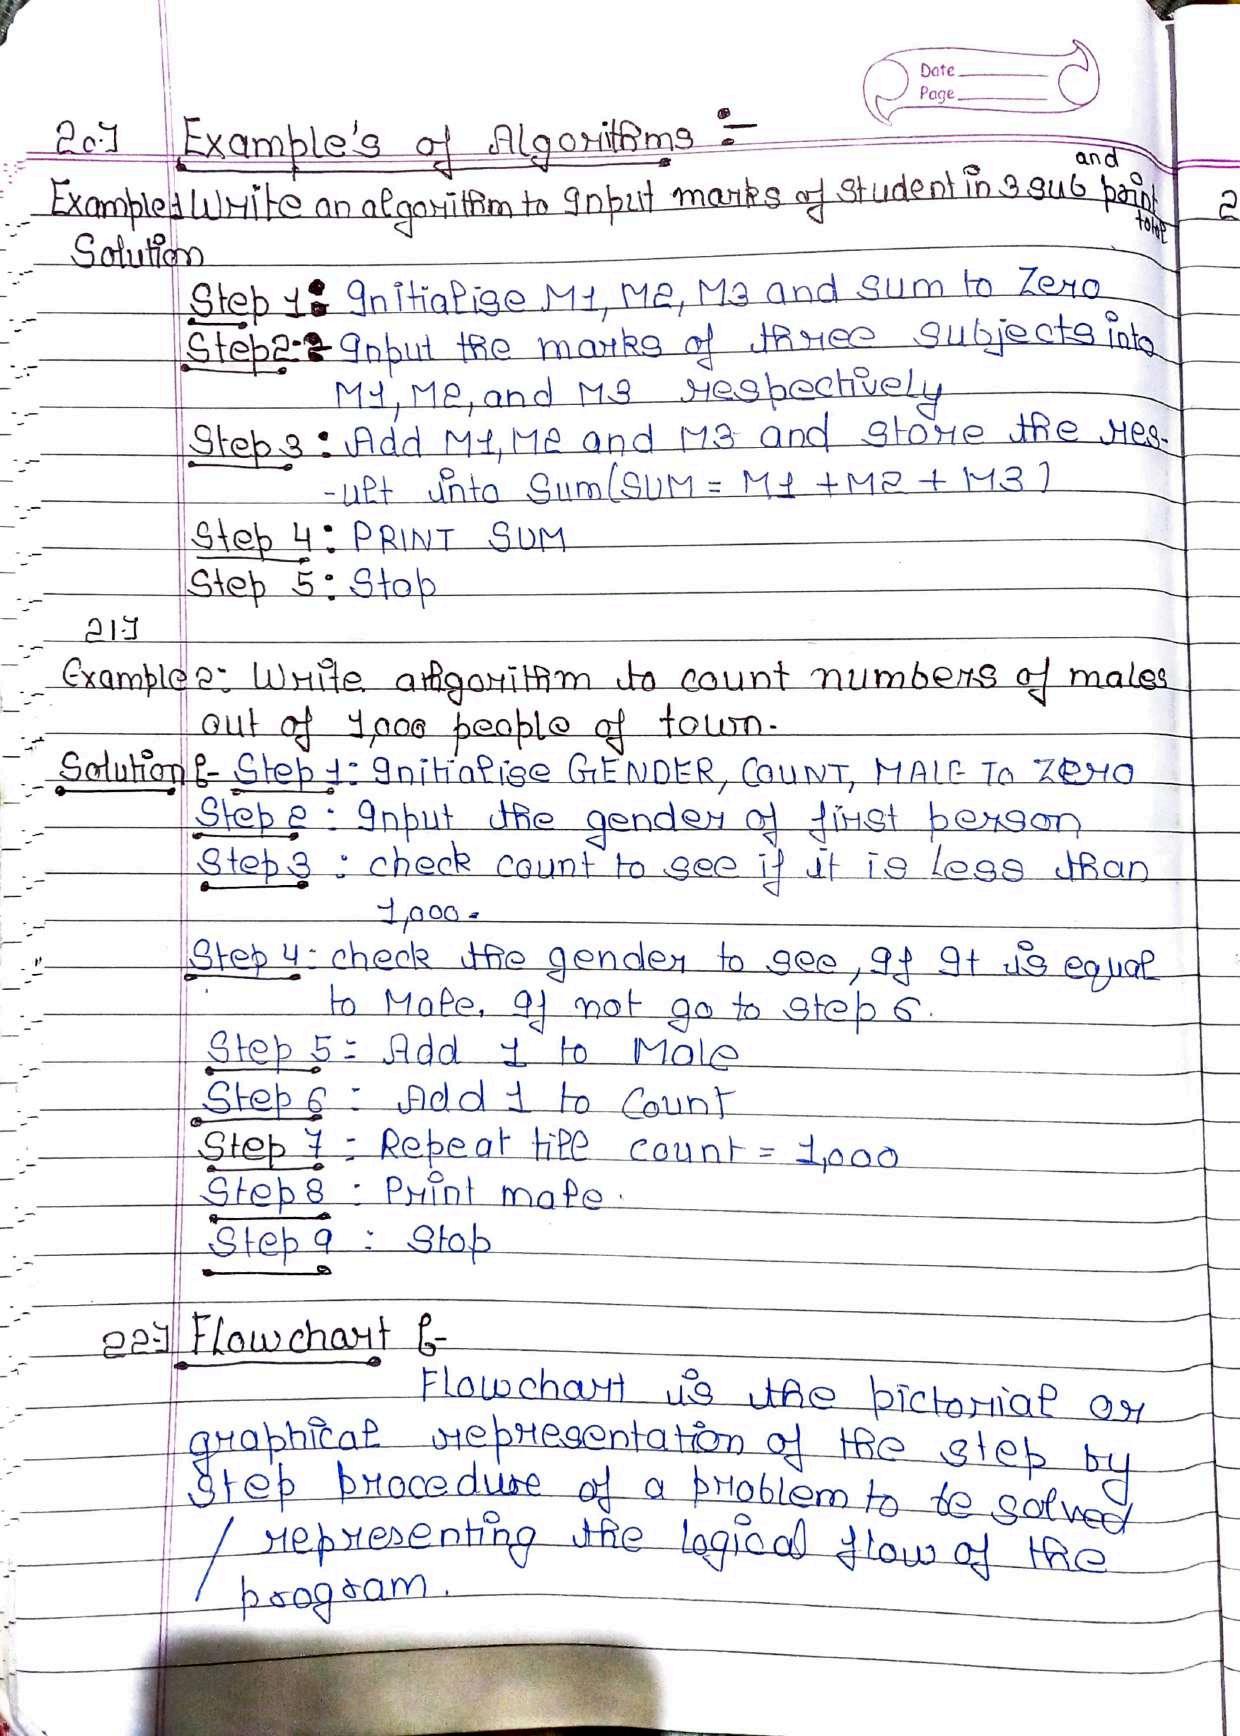 Date
Page
20.] Example's of Algorithms :-
and
Example 1 Write an algorithm to Input marks of student in 3 sub point
total
2
Solution
Step 1: Initialise M1, M2, M3 and sum to Zero
Step 2:- Input the marks of three subjects into
M1, M2, and M3 respectively
Step 3: Add M1, M2 and M3 and store the res-
-ult into Sum (SUM = M1 + M2 + M3)
Step 4: PRINT SUM
Step 5: Stop
21.]
Example 2: Write algorithm to count numbers of males
out of 1,000 people of town.
Solution :- Step 1: Initialise GENDER, COUNT, MALE TO ZERO
Step 2: Input the gender of first person
Step 3: check count to see if it is less than
1,000.
Step 4: check the gender to see, If It is equal
to Male. If not go to step 6.
Step 5: Add 1 to Male
Step 6: Add 1 to Count
Step 7: Repeat till count = 1,000
Step 8: Print male.
Step 9: Stop
22.] Flowchart :-
Flowchart is the pictorial or
graphical representation of the step by
step procedure of a problem to be solved
/ representing the logical flow of the
program.